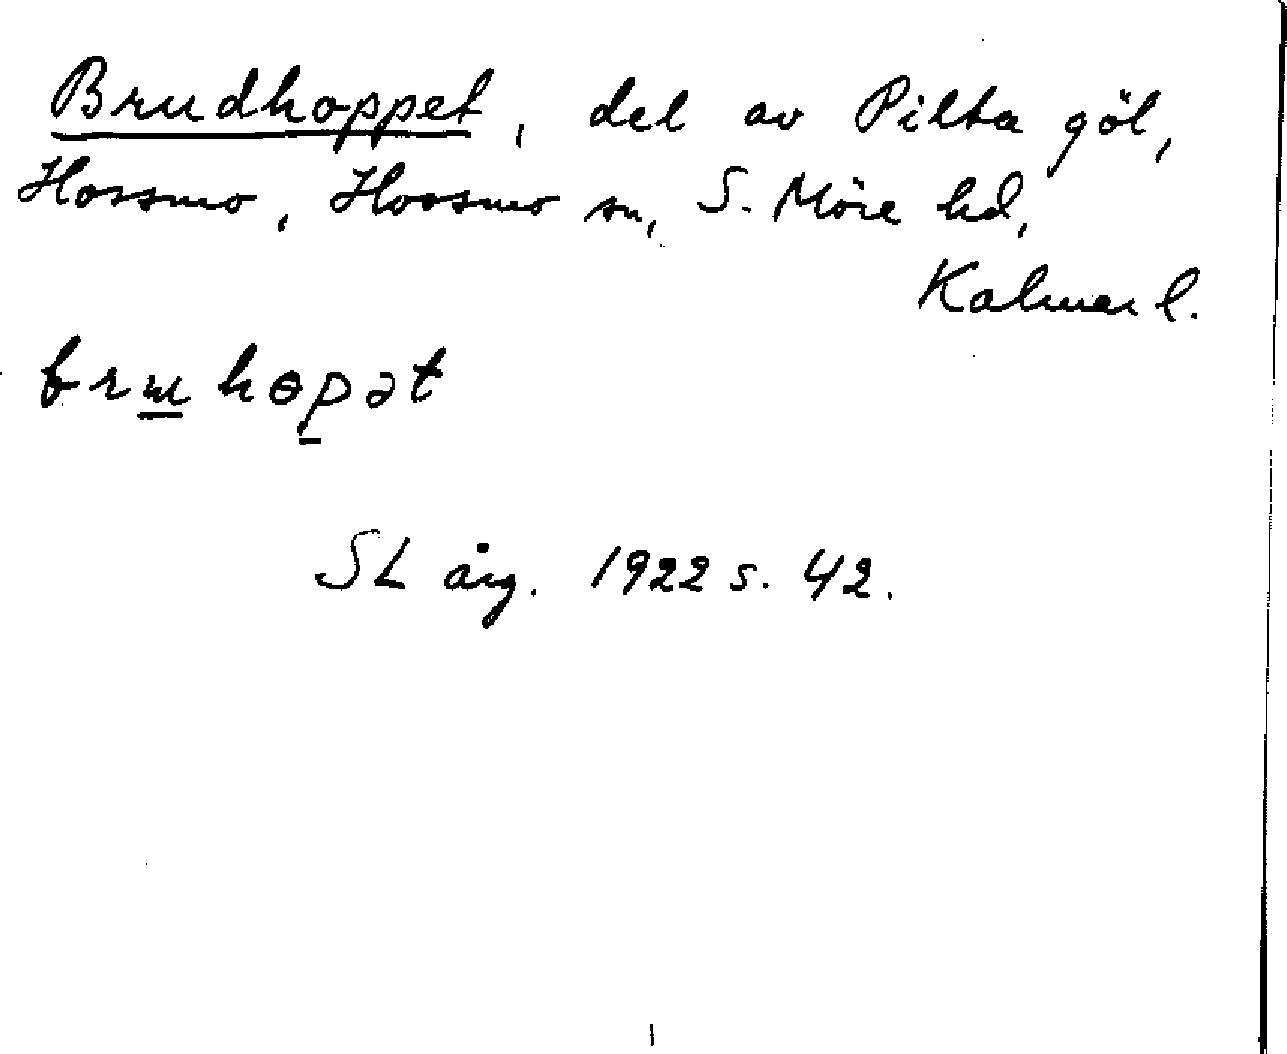 Brudhoppet, del av Pilta göl,
Hossmo, Hossmo sn, S. Möre hd,
Kalmar l.
brɯhɵpət
SL årg. 1922 s. 42.